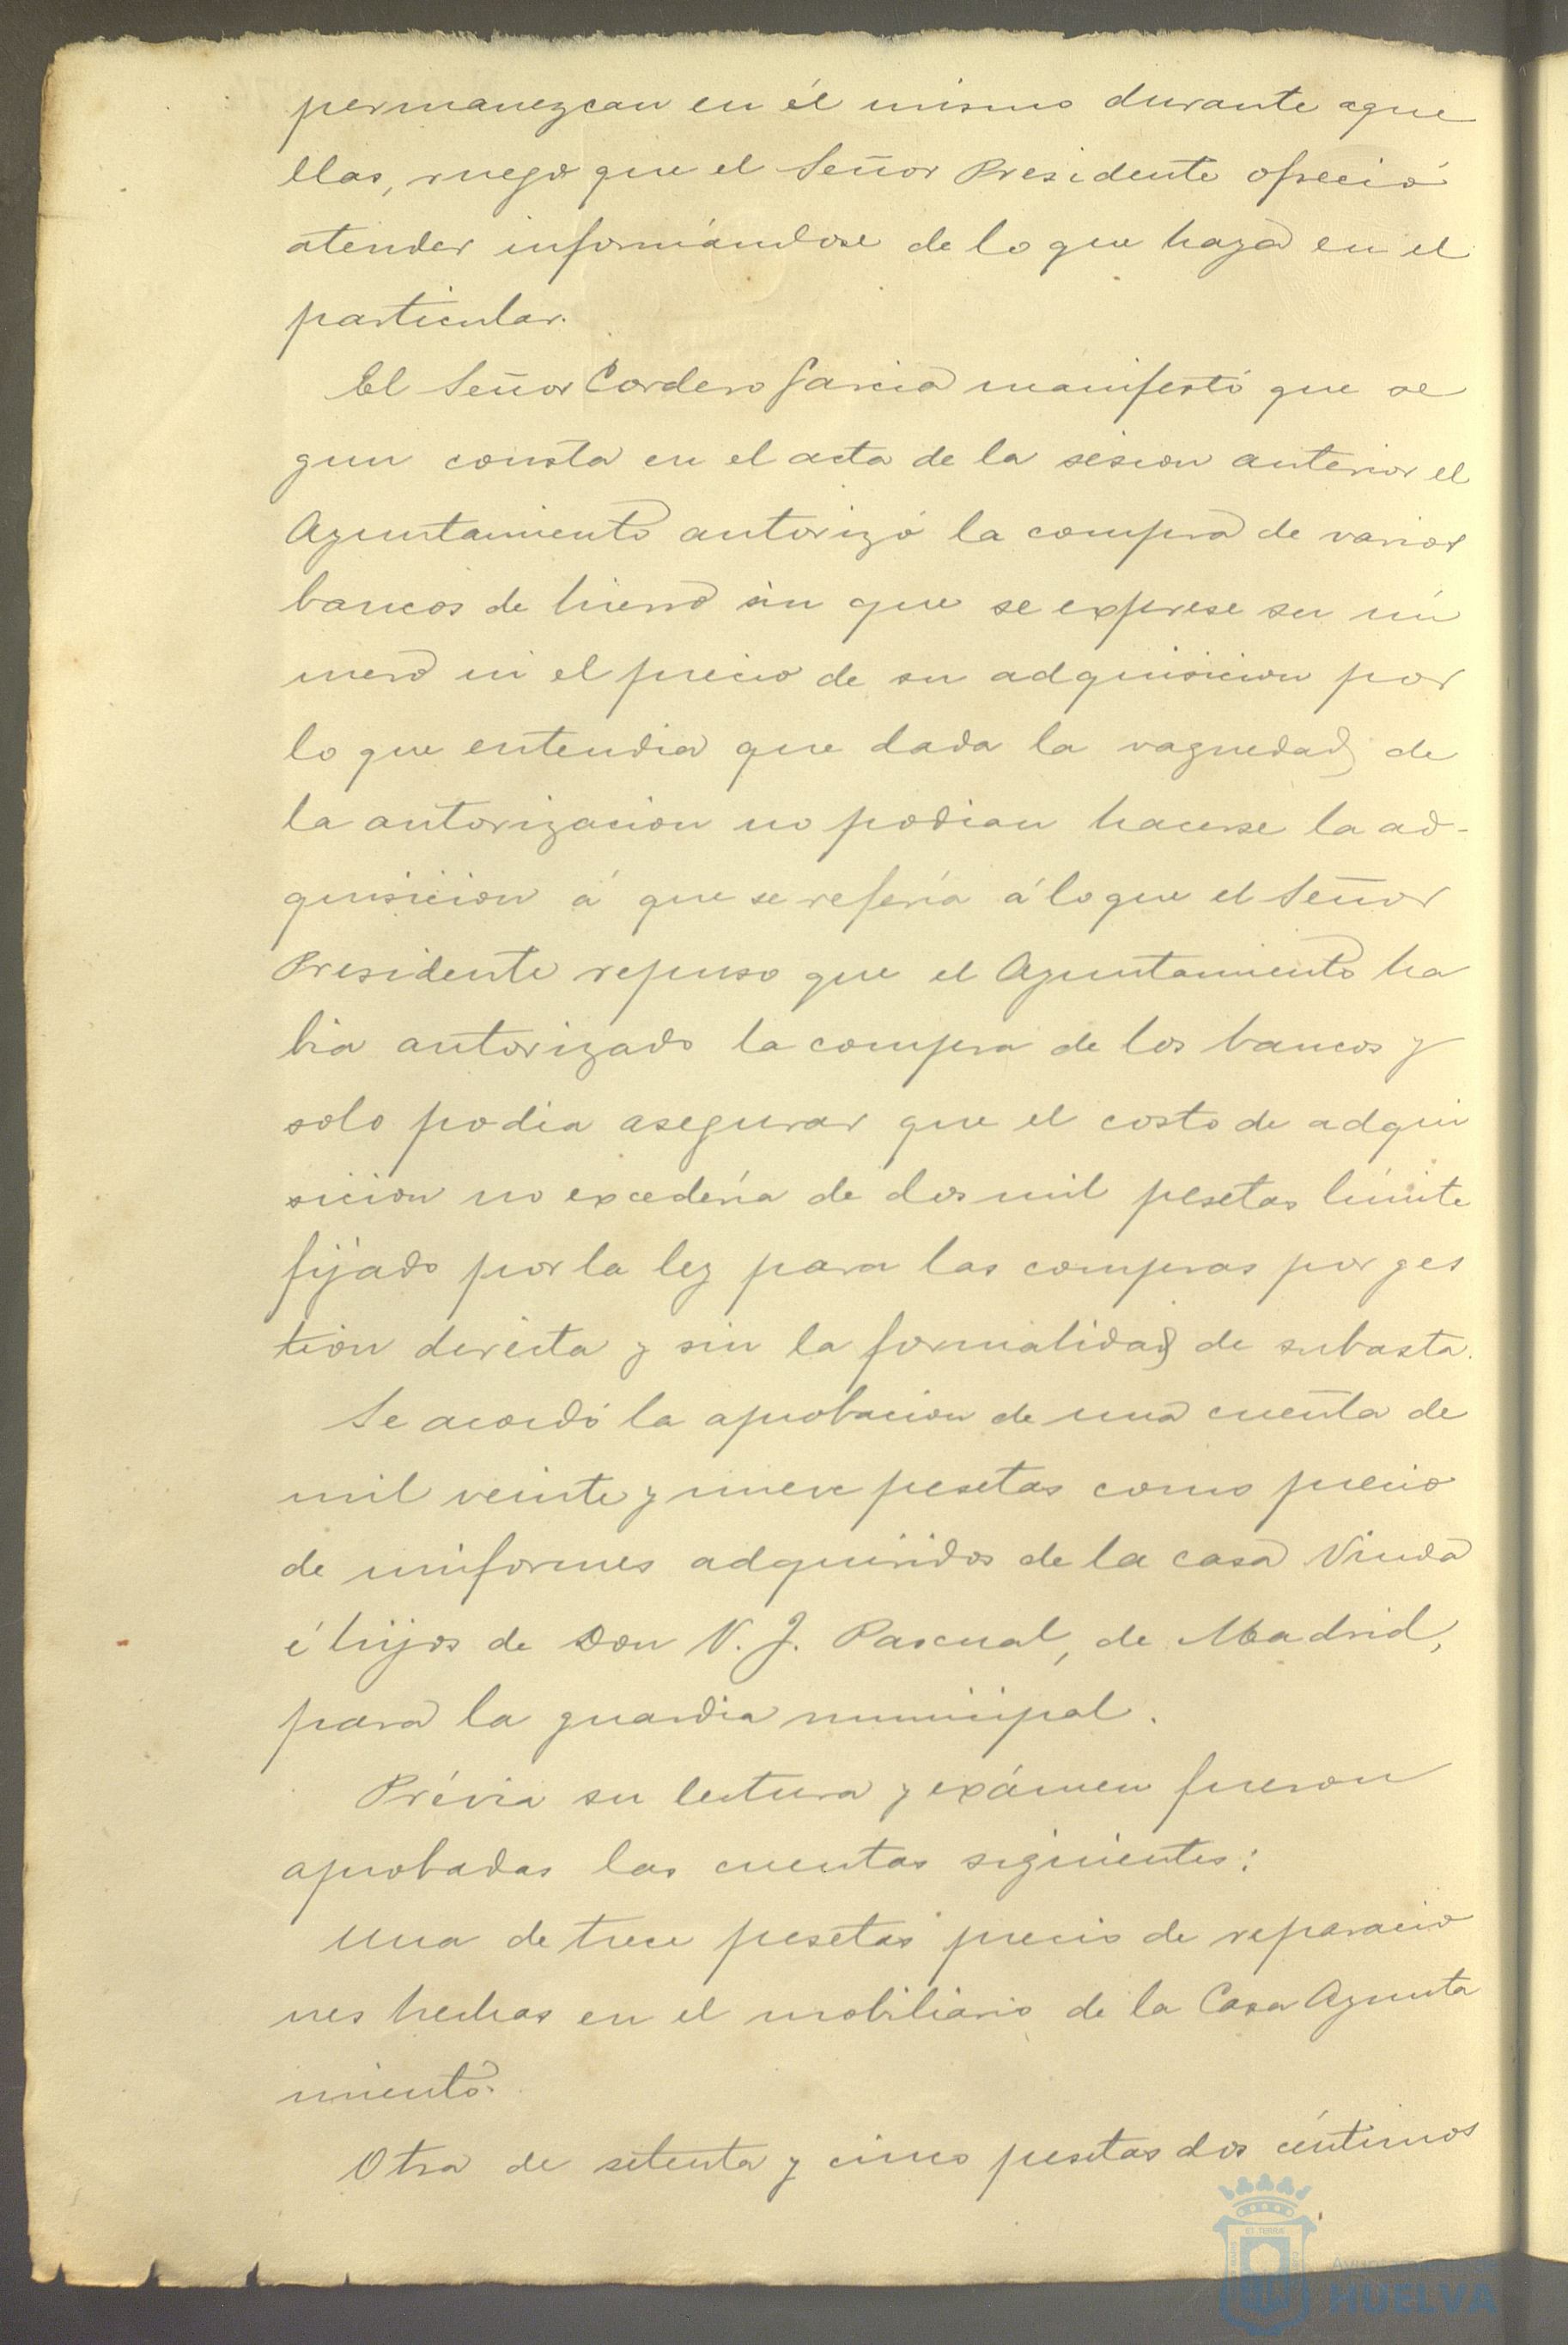 permanezcan en él mismo durante aque
llas, ruego que el Señor Presidente ofreció
atender informándose de lo que haya en el
particular.
El Señor Cordero Garcia manifestó que se
gun consta en el acta de la sesion anterior el
Ayuntamiento autorizó la compra de varios
bancos de hierro sin que se exprese su nú
mero ni el precio de su adquisicion por
lo que entendia que dada la vaguedad de
la autorizacion no podian hacerse la ad-
quisicion á que se refería á lo que el Señor
Presidente repuso que el Ayuntamiento ha
bia autorizado la compra de los bancos y
solo podia asegurar que el costo de adqui
sicion no excedería de dos mil pesetas límite
fijado por la ley para las compras por ges
tión directa y sin la formalidad de subasta.
Se acordó la aprobacion de una cuenta de
mil veinte y nueve pesetas como precio
de uniformes adquiridos de la casa Viuda
é hijos de Don N. J. Pascual, de Madrid,
para la guardia municipal.
Prévia su lectura y exámen fueron
aprobadas las cuentas siguientes:
Una de trece pesetas precio de reparacio
nes hechas en el mobiliario de la Casa Ayunta
miento.
Otra de setenta y cinco pesetas dos céntimos
HUELVA